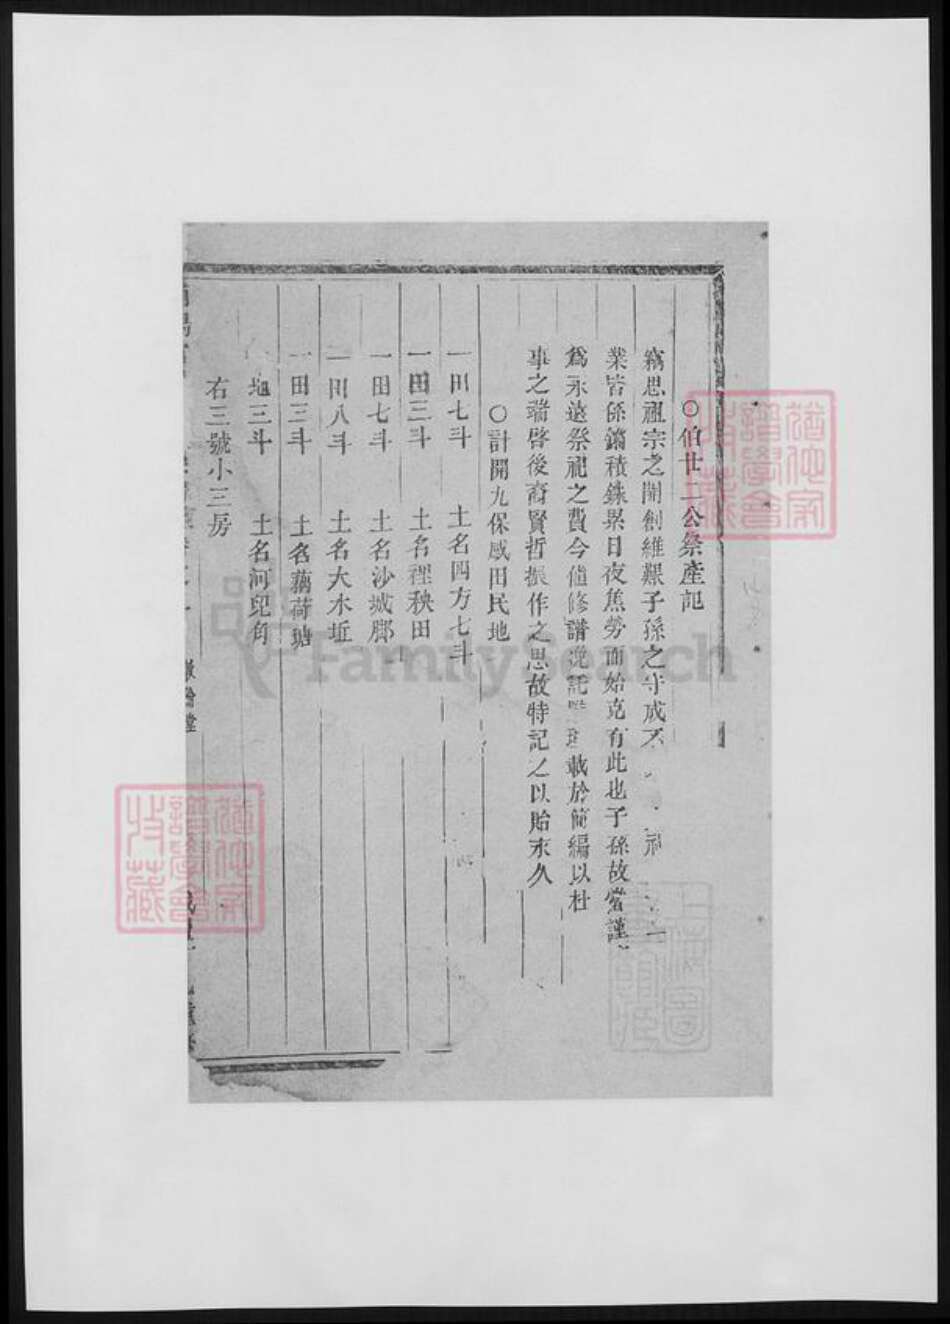 ○伯廿二公祭產記
竊思祖宗之開創維艱子孫之守成不
業皆係鏽積銖累日夜焦勞而始克有此也子孫故當謹
爲永遠祭祀之費今値修譜 載於簡編以杜
事之端啓後裔賢哲振作之思故特記之以貽永久
○計開九保咸田民地
一田七斗 土名四方七斗
一田三斗 土名裡秧田
一田七斗 土名沙城廍
一田八斗 土名大木坵
一田三斗 土名藕荷塘
一地三斗 土名河兒角
右三號小三房
敦倫堂
FamilySearch
猶他家譜學會收藏
猶他家譜學會收藏
上海圖書館